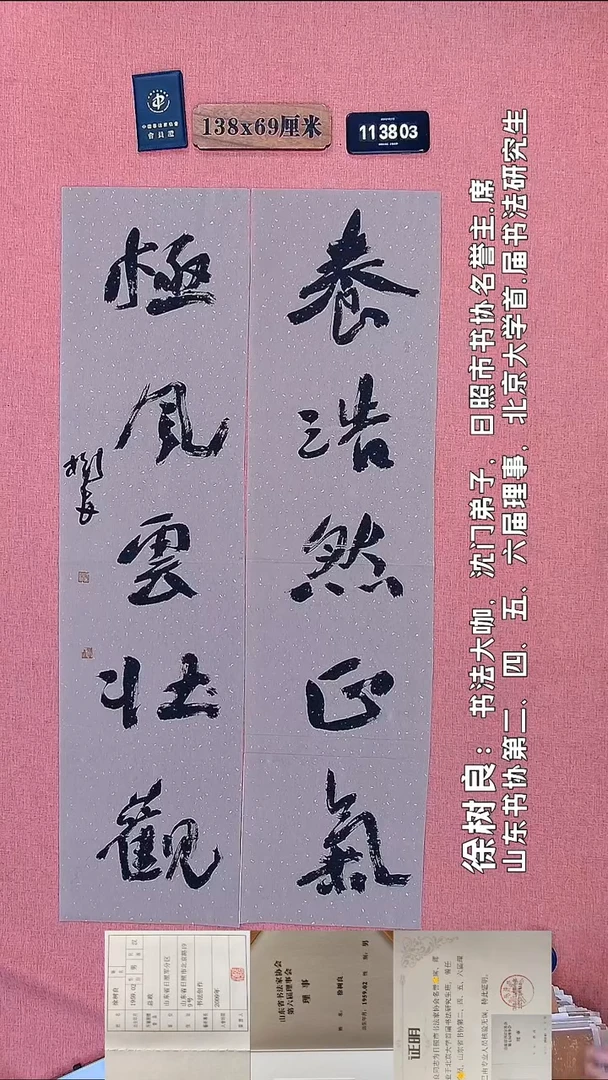 中國書法家協會
會員證
138x69厘米
113803
養浩然正氣
極風雲壯觀
樹良
徐树良：书法大咖，沈门弟子，日照市书协名誉主.席
山东书协第二、四、五、六届理事，北京大学首.届书法研究生
徐树良
1959.02
男
汉
书法创作
2009年
山东省书法家协会
第六届理事会
理事
徐树良
男
1959.02
证明